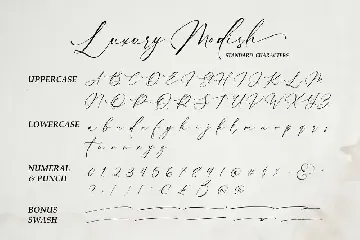 Luxury Modish
STANDARD CHARACTERS
UPPERCASE A B C D E F G H I J K L M
N O P Q R S T U V W X Y Z
LOWERCASE a b c d e f g h i j k l m n o p q r s
t u v w x y z
NUMERAL 0 1 2 3 4 5 6 7 8 9
& PUNCH
BONUS
SWASH